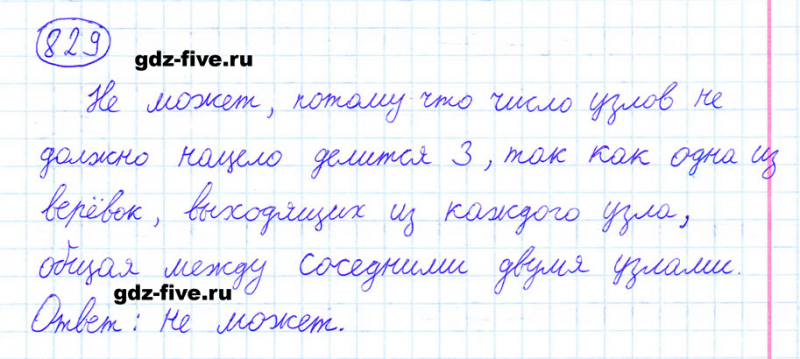 829
gdz-five.ru
Не может, потому что число узлов не
должно нацело делится 3, так как одна из
верёвок, выходящих из каждого узла,
общая между соседними двумя узлами.
gdz-five.ru
Ответ: не может.